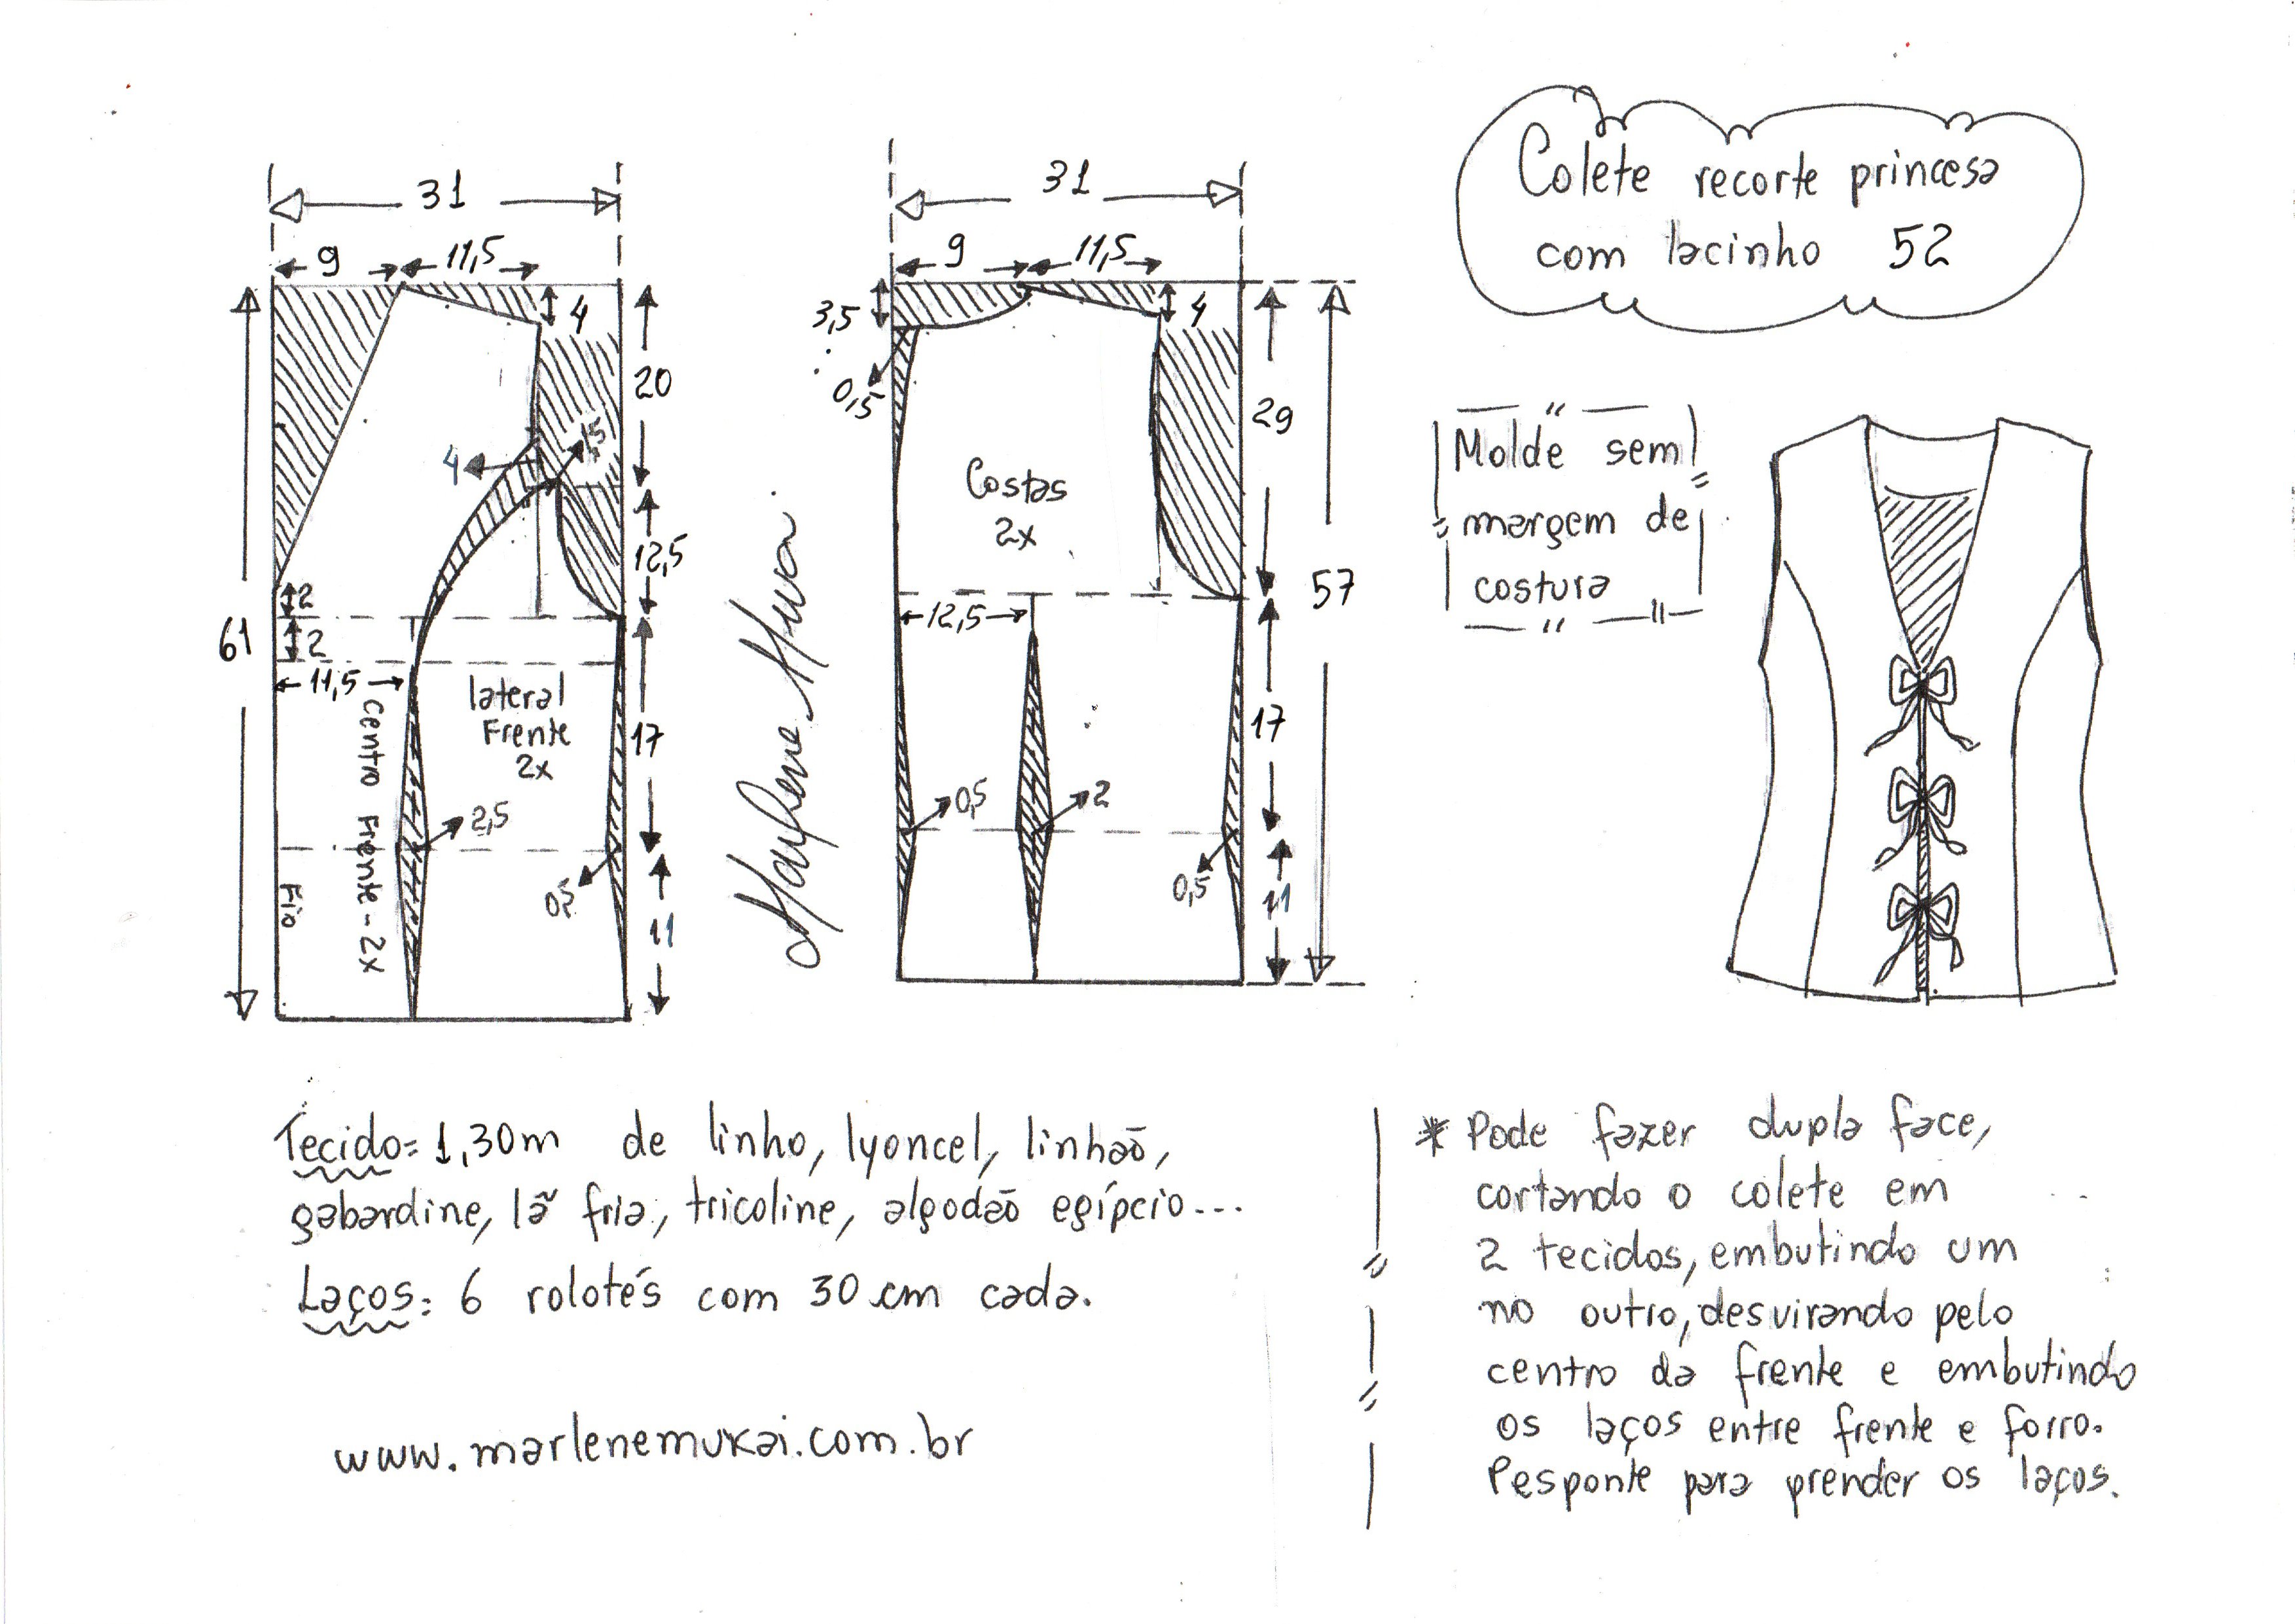 Colete recorte princesa
com lacinho 52
31
9
11,5
4
20
15
4
12,5
2
2
61
11,5
Centro Frente - 2x
lateral
Frente
2x
17
2,5
0,5
Fio
11
31
9
11,5
3,5
4
0,5
29
Costas
2x
57
12,5
17
0,5
2
0,5
11
Molde sem
margem de
costura
Tecido = 1,30m de linho, lyoncel, linhão,
gabardine, lã fria, tricoline, algodão egípcio...
Laços: 6 rolotés com 30 cm cada.
www.marlenemukai.com.br
* Pode fazer dupla face,
cortando o colete em
2 tecidos, embutindo um
no outro, desvirando pelo
centro da frente e embutindo
os laços entre frente e forro.
Pesponte para prender os laços.